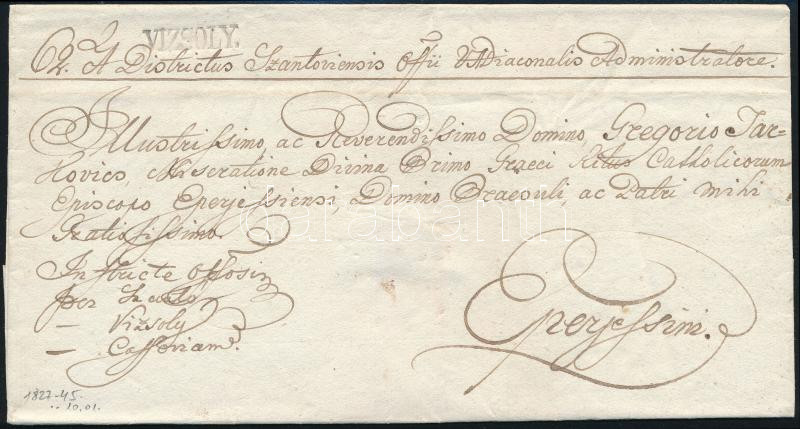 VIZSOLY.
A Districtus Szantoviensis Offii VADiaconalis Administratore.
Illustrissimo, ac Reverendissimo Domino, Gregorio Tar-
kovics, Miseratione Divina Primo Graeci Ritus Catholicorum
Episcopo Eperjessiensi, Domino Praesuli, ac Patri mihi
Gratiosissimo.
In stricte Offosis
per Szanto
— Vizsoly
— Cassoviam.
Eperjessini.
1827-45
10.01.